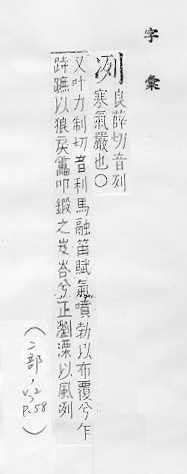 字彙
冽
良薛切音列
寒氣嚴也○
又叶力制切音利馬融笛賦氣噴勃以布覆兮乍
跱蹠以狼戾靁叩鍛之岌峇兮正瀏溧以風冽
(冫部, v.2
P.58)